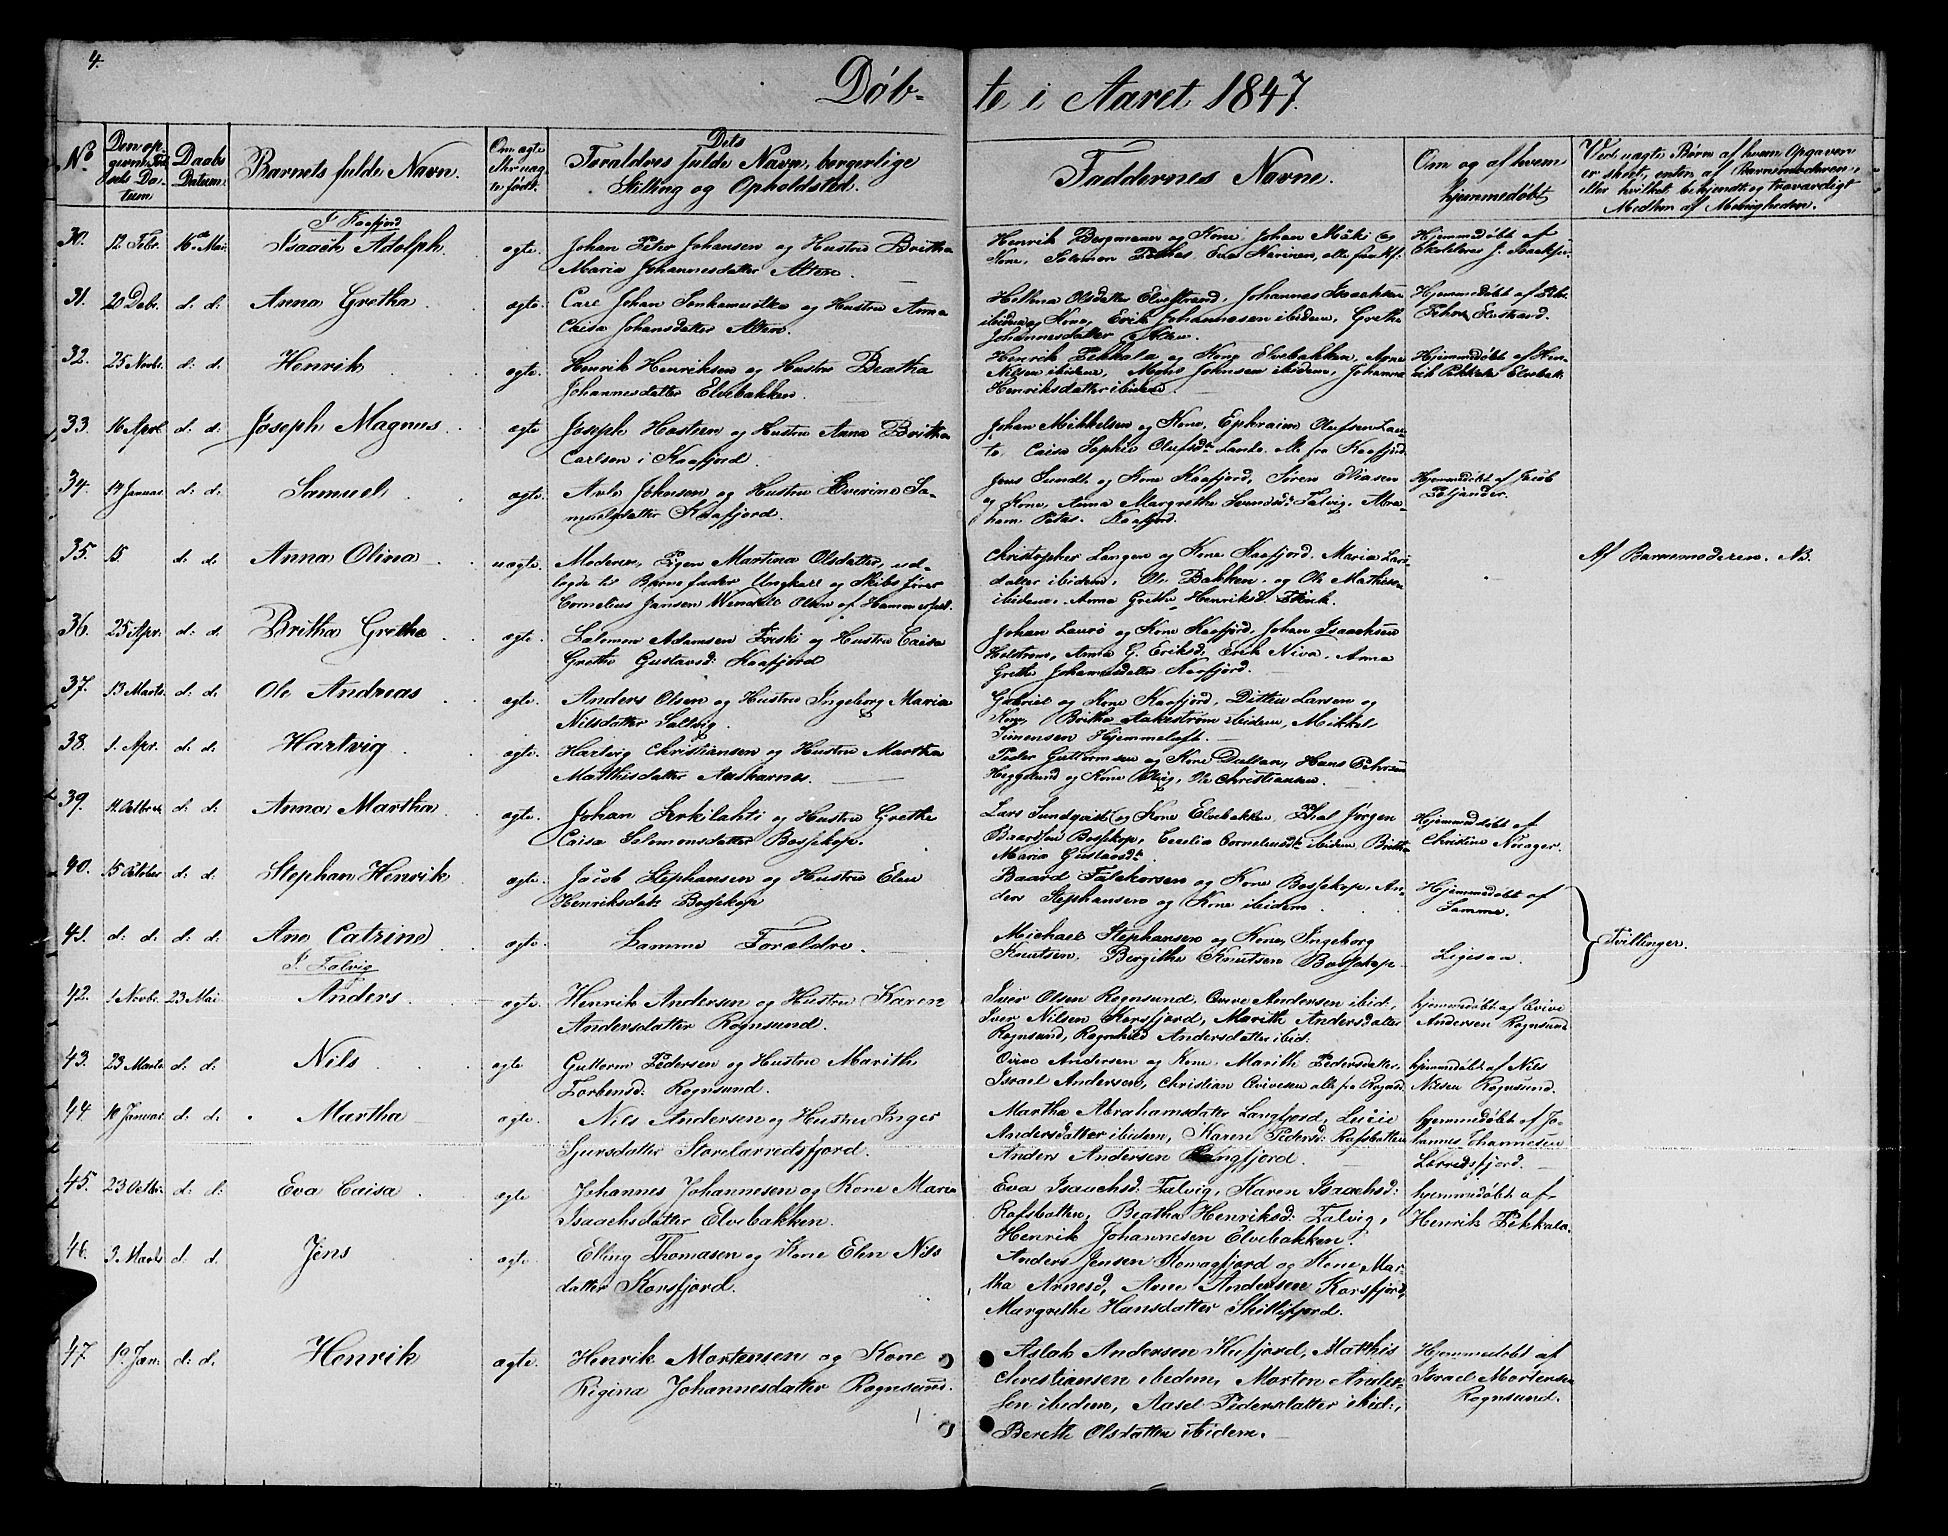 4.
Døb- te i Aaret 1847.
No
Den op-
givne Fød-
sels Da-
tum
Daabs
Datum
Barnets fulde Navn.
Om ægte
eller uæg-
te født.
Dets
Forældres fulde Navn, borgerlige
Stilling og Opholdsted.
Faddernes Navne.
Om og af hvem
hjemmedøbt
Ved uægte Børn af hvem Opgaven
er skeet, enten af Barnemoderen,
eller hvilket bekjendt og troværdigt
Medlem af Menigheden.
I Kaafjord
30. 12 Febr. 16de Mai. Isaach Adolph. ægte. Johan Peter Johansen og Hustru Britha
Maria Johannesdatter Alten.
Henrik Bergmann og Kone, Johan Mäki og
Kone, Salomon Eva Karinen, alle fra Kf.
Hjemmedøbt af
Skolelærer J. Isaaksen
31. 20 Debr. d: d: Anna Gretha ægte. Carl Johan Sonkamuotka og Hustru Anna
Caisa Johansdatter Alten.
Hellena Olsdatter Elvestrand, Johannes Isaachsen
ibidem og Kone, Erik Johannesen ibidem, Grethe
Johannesdatter Alten.
Hjemmedøbt af
Elvestrand.
32. 25 Novbr. d: d: Henrik ægte. Henrik Henriksen og Hustru Beatha
Johannesdatter Elvebakken.
Henrik Pekkala og Kone Elvebakken, Arne
Nilsen ibidem, Mons Johnsen ibidem, Johanna
Henriksdatter ibidem
Hjemmedøbt af Hen-
rik Pekkala Elvebak
33. 16 April d: d: Joseph Magnus ægte Joseph Hastien og Hustru Anna Britha
Carlsen i Kaafjord.
Johan Mikkelsen og Kone, Ephraim Olufsen Lan-
to, Caisa Sophie Olufsdr. Lanto. Alle fra Kaafjord
34. 14 Januar d: d: Samuel ægte. Ants Johnsen og Hustru Everine Sa-
muelsdatter Kaafjord.
Jens Sundt og Kone Kaafjord, Søren Eliasen
og Kone, Anna Margrethe Svendsdr. Talvig, Abra-
ham Kaafjord.
Hjemmedøbt af Jacob
35. 15. d: d: Anna Olina uægte. Moderen, Pigen Martina Olsdatter, ud-
lagde til Barnefader Ungkarl og Skibsfører
Cornelius Jansen Wendelt Olsen af Hammerfest.
Christopher Langen og Kone Kaafjord, Maria Lars
datter ibidem, Ole Bakken, og Ole Mathisen
ibidem, Anna Grethe Henriksd.
Af Barnemoderen. NB.
36. 25 Apr. d: d: Britha Gretha ægte. Salomon Adamsen Friski og Hustru Caisa
Grethe Gustavsd: Kaafjord
Johan Lauro og Kone Kaafjord, Johan Isaachsen
Holstrøm, Anna G. Eriksd., Erik Niva, Anna
Grethe Johannesdatter Kaafjord.
37. 13 Marts d: d: Ole Andreas ægte. Anders Olsen og Hustru Ingeborg Maria
Nilsdatter Talvig.
Gabriel og Kone Kaafjord, Ditten Larsen og
Kone, Britha Aakestrøm ibidem, Mikkel
Simensen Hjemmeluft.
38. 1. Apr. d: d: Hartvig ægte. Hartvig Christiansen og Hustru Martha
Mathisdatter Auskarnes.
Peder Guttormsen og Kone Dalsen, Hans Pehrsen
Heggelund og Kone Talvig, Ole Christiansen.
39. 11. Octbr d: d: Anna Martha ægte. Johan Serkilahti og Hustru Grethe
Caisa Salomonsdatter Bossekop.
Lars Sundqvist og Kone Elvebakken, Axel Jørgen
Baardsen Bossekop, Cecelia Corneliusdr. ibidem, Britha
Maria Gustavsdr.
Hjemmedøbt af
Christine Nuager.
40. 15 October d: d: Stephan Henrik ægte. Jacob Stephansen og Hustru Elen
Henriksdatr. Bossekop
Baard Falskorsen og Kone Bossekop, An-
ders Stephansen og Kone ibidem.
Hjemmedøbt af
Samme.
41. d: d: d: d: Ane Catrine ægte. Samme Forældre.
Michael Stephansen og Kone, Ingeborg
Knutsen, Bergithe Knutsen Bossekop
Ligesaa.
Tvillinger.
I Talvig
42. 1 Novbr. 23 Mai Anders ægte. Henrik Andersen og Hustru Karen
Andersdatter Rognsund.
Iver Olsen Rognsund, Ovive Andersen ibid:,
Iver Nilsen Korsfjord, Marith Andersdatter
Rognsund, Ragnhild Andersdatter ibid:
hjemmedøbt af Ovive
Andersen Rognsund
43. 23 Marts d: d: Nils ægte Guttorm Pedersen og Hustru Marith
Torbensd: Rognsund.
Ovive Andersen og Kone, Marith Pedersdatter
Israel Andersen, Christian Ovivesen alle fra Rognsd.
hjemmedøbt af Nils
Nilsen Rognsund.
44. 10 Januar. d: d: Martha ægte. Nils Andersen og Hustru Inger
Sjursdatter Storelerredsfjord.
Martha Abrahamsdatter Langfjord, Lucie
Andersdatter ibidem, Karen Pedersd: Rafsbotten
Anders Andersen Langfjord.
hjemmedøbt af Jo-
hannes Thannesen
Lerredsfjord.
45. 23 Octbr. d: d: Eva Caisa ægte Johannes Johannesen og Kone Maria
Isaachsdatter Elvebakken.
Eva Isaachsd: Talvig, Karen Isaachsd:
Rafsbotten, Beatha Henriksd: Talvig,
Henrik Johannesen Elvebakken.
hjemmedøbt af
Henrik Pekkala.
46. 3 Marts d: d. Jens ægte. Elling Thomasen og Kone Elen Nils
datter Korsfjord.
Anders Jensen Komagfjord og Kone, Mar-
tha Arnesd, Arne Andersen Korsfjord,
Margrethe Hansdatter Skillefjord.
47. 19. Jan: d: d. Henrik ægte. Henrik Mortensen og Kone
Rigina Johannesdatter Rognsund.
Aslak Andersen Kufjord, Mathis
Christiansen ibidem, Morten Ander-
sen ibidem, Aasel Pedersdatter ibid:,
Berethe Olsdatter ibidem.
Hjemmedøbt af
Israel Mortensen
Rognsund.